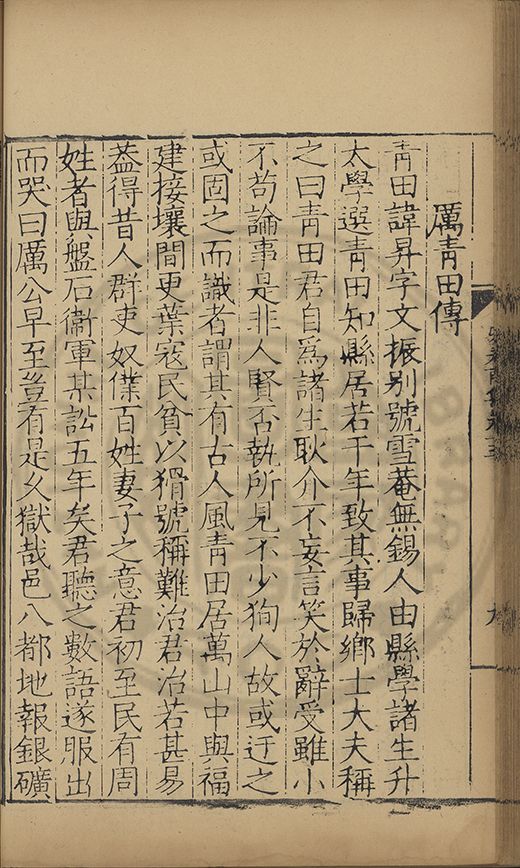 厲青田傳
青田諱昇字文振别號雪菴無錫人由縣學諸生升
太學選青田知縣居若干年致其事歸鄉士大夫稱
之曰青田君自爲諸生耿介不妄言笑於辭受雖小
不苟論事是非人賢否執所見不少狥人故或迂之
或固之而識者謂其有古人風青田居萬山中與福
建接壤間更葉寇民貧以猾號稱難治君治若甚易
葢得昔人群吏奴僕百姓妻子之意君初至民有周
姓者與盤石衞軍某訟五年矣君聽之數語遂服出
而哭曰厲公早至豈有是乆獄哉邑八都地報銀礦